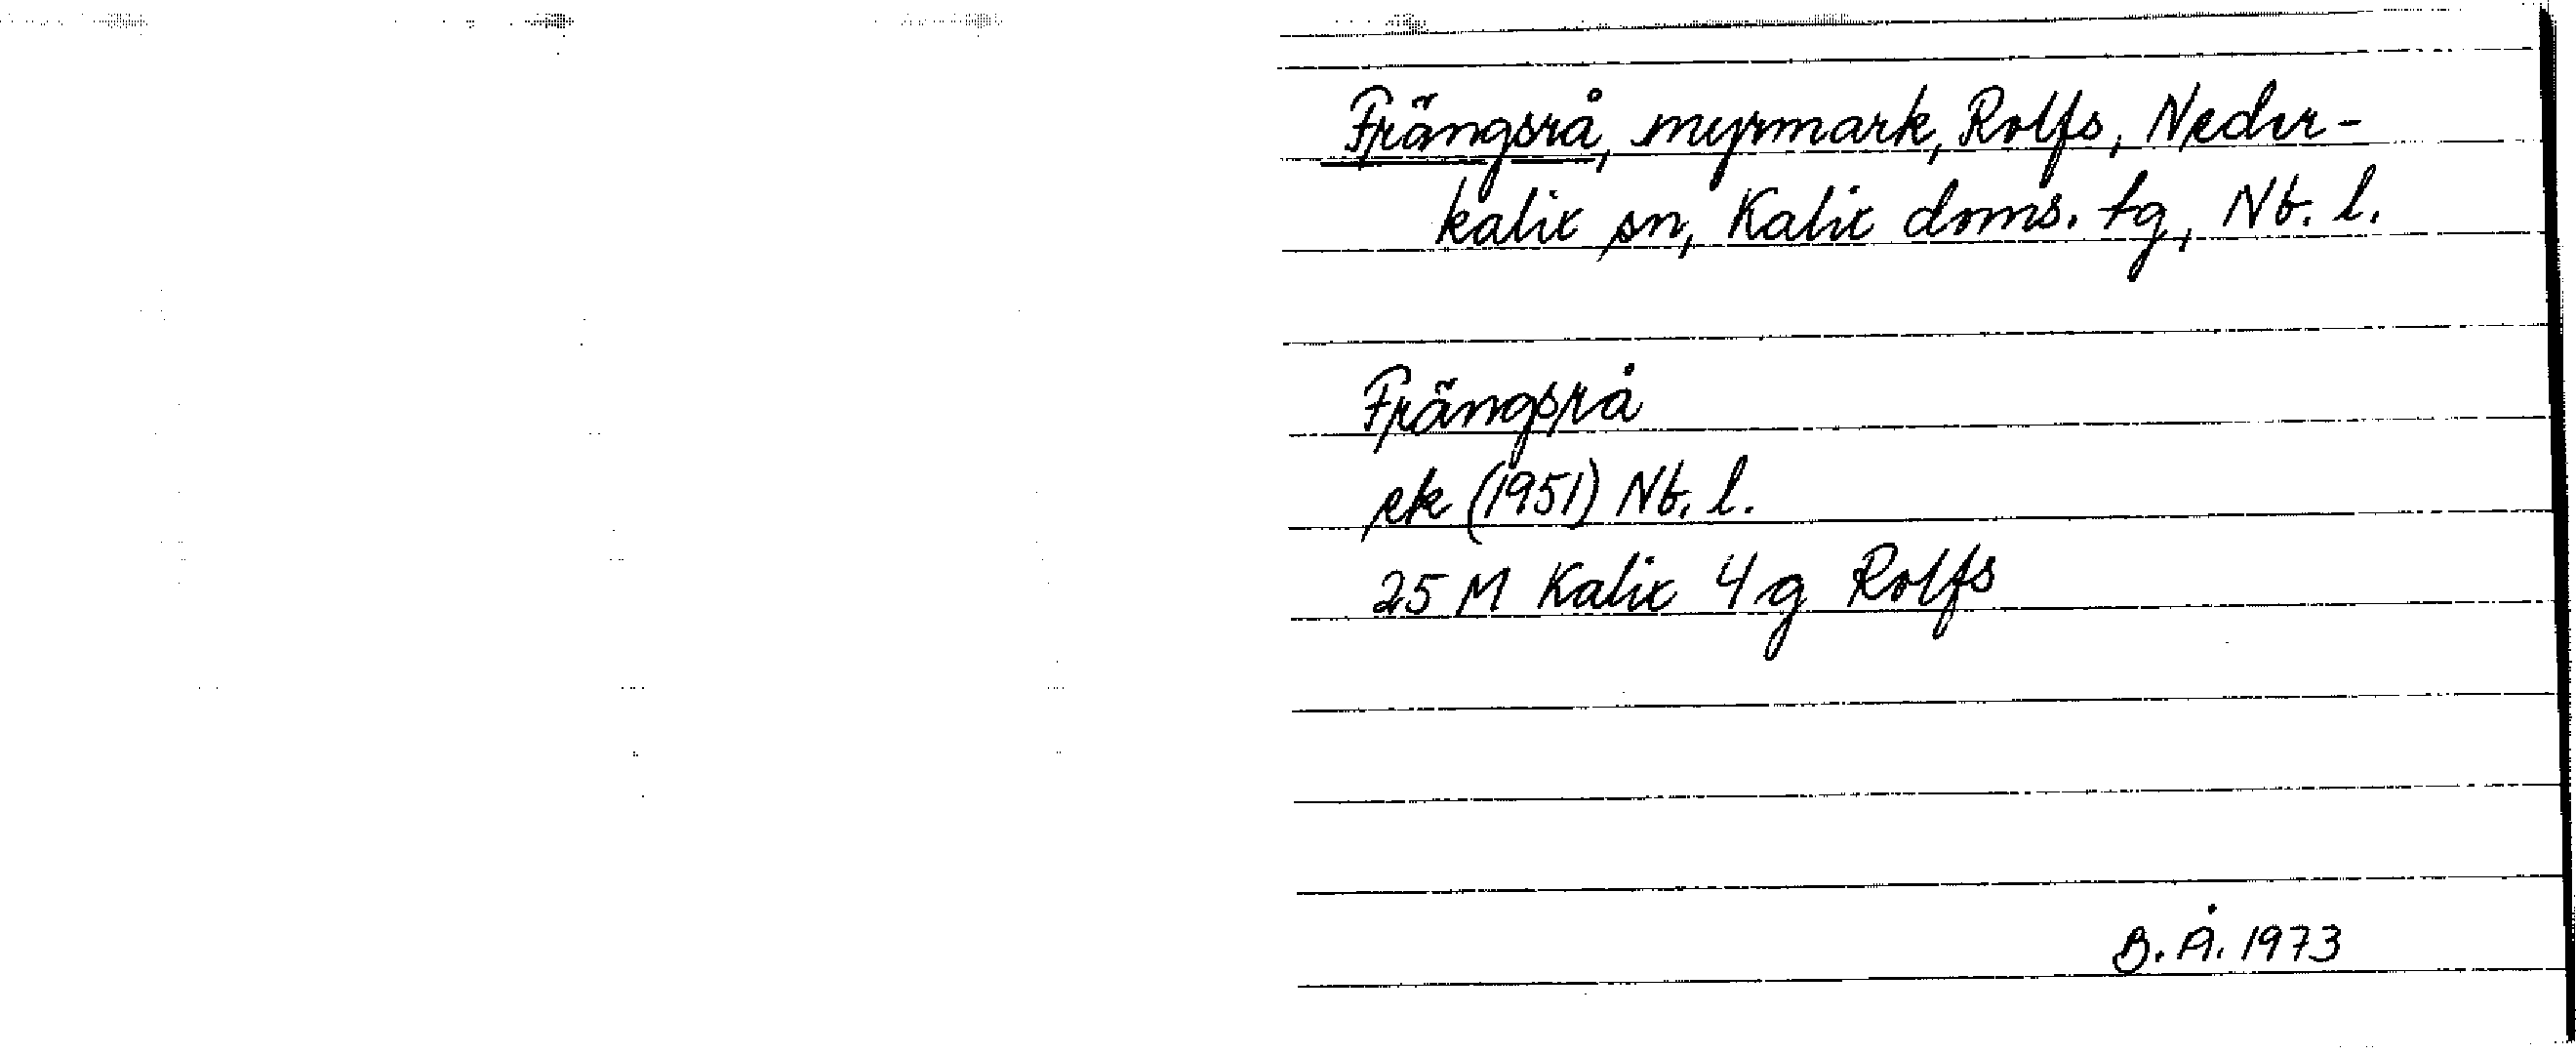 Frängsrå, myrmark, Rolfs, Neder-
kalix sn, Kalix doms. tg, Nb. l.
Frängsrå
ek (1951) Nb. l.
25 M Kalix 4 g Rolfs
B. Å. 1973